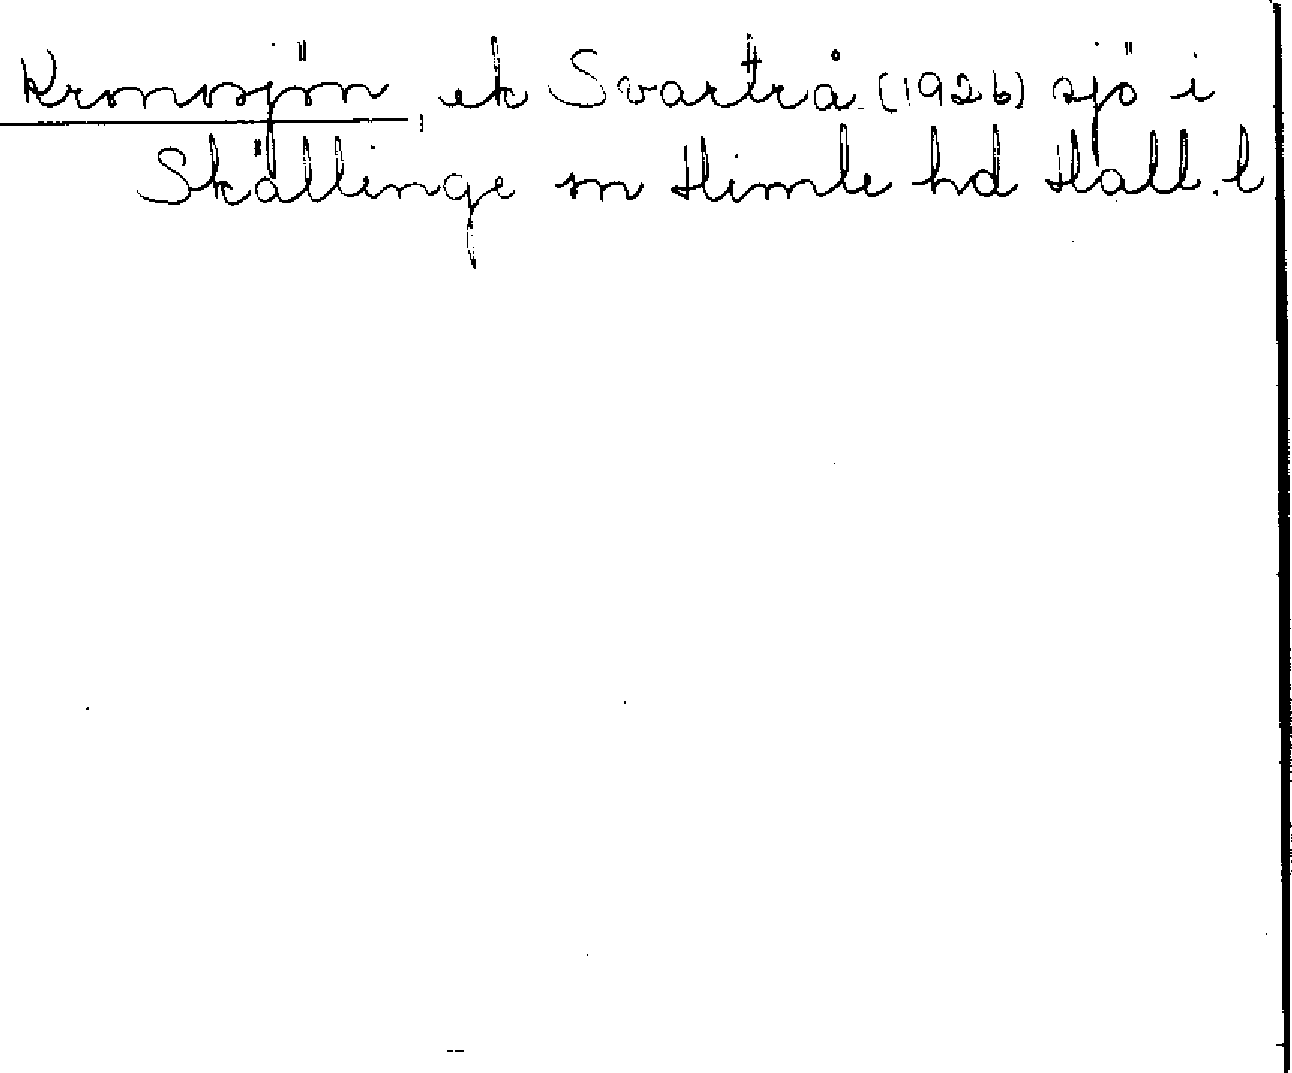 Kronosjön, ek Svartrå (1926) sjö i
Skällinge sn Himle hd Hall. l